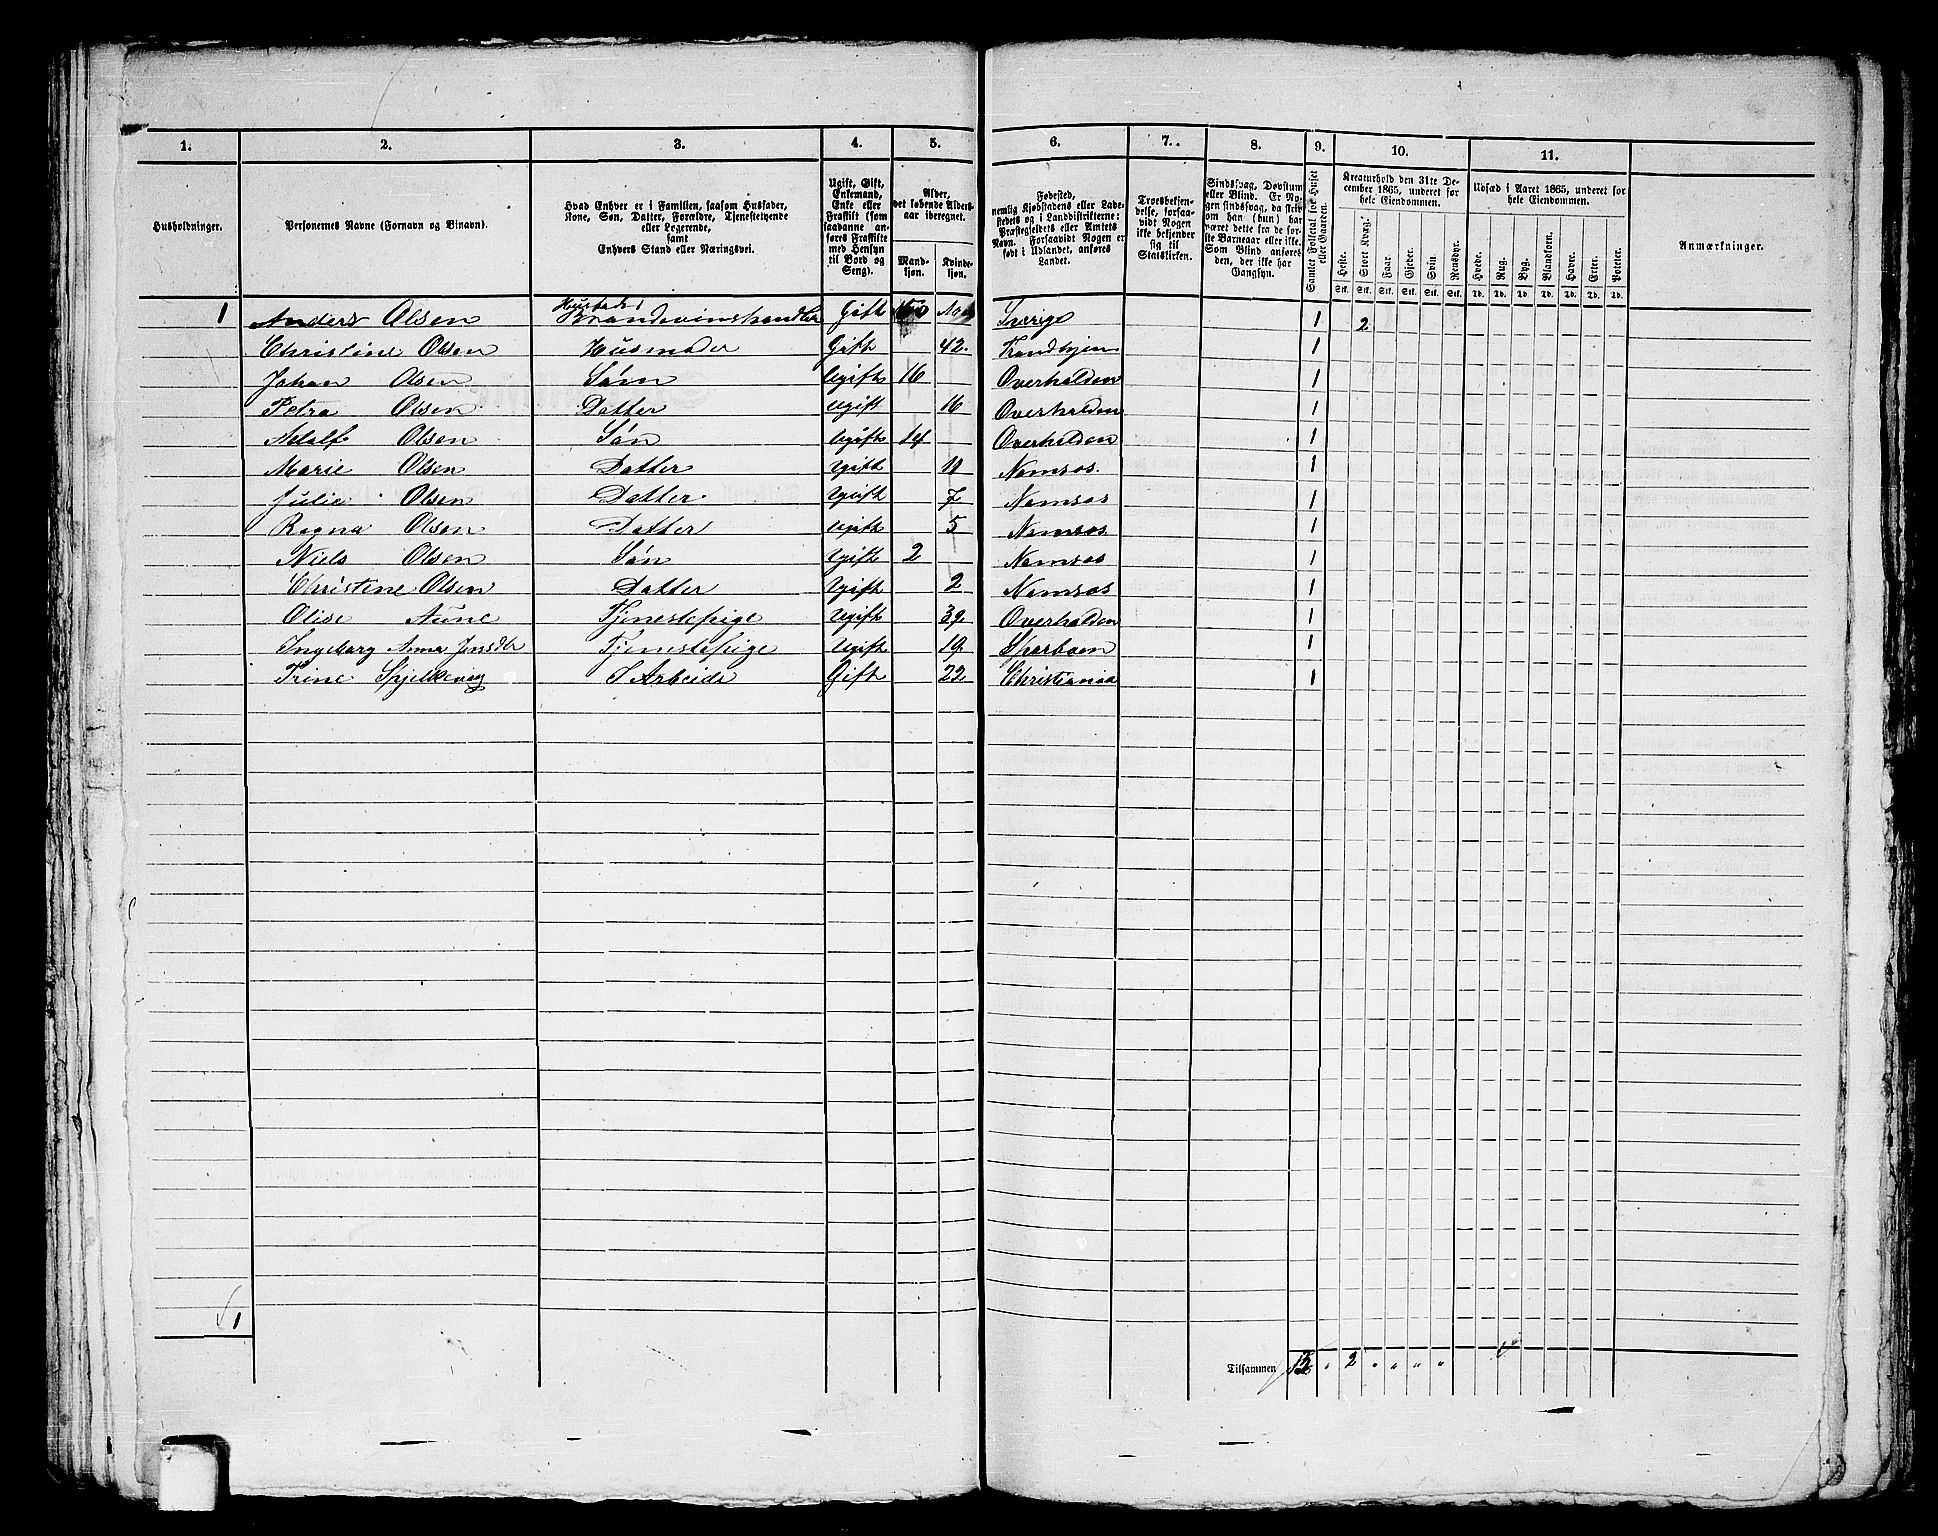 1. 2. 3. 4. 5. 6. 7. 8. 9. 10. 11.
Husholdninger.
Personernes Navne (Fornavn og Binavn).
Hvad Enhver er i Familien, saasom Husfader,
Kone, Søn, Datter, Forældre, Tjenestetyende
eller Logerende,
samt
Enhvers Stand eller Næringsvei.
Ugift, Gift,
Enkemand,
Enke eller
Fraskilt (som
saadanne an-
føres Fraskilte
med Hensyn
til Bord og
Seng).
Alder,
det løbende Alders-
aar iberegnet.
Mand-
kjøn.
Kvinde-
kjøn.
Fødested,
nemlig Kjøbstadens eller Lade-
stedets og i Landdistrikterne:
Præstegjeldets eller Amtets
Navn. Forsaavidt Nogen er
født i Udlandet, anføres
Landet.
Troesbekjen-
delse, forsaa-
vidt Nogen
ikke bekjender
sig til
Statskirken.
Sindssvag, Døvstum
eller Blind. Er No-
gen sindssvag, da skriv
om han (hun) har
været dette fra de før-
ste Barneaar eller ikke.
Som Blind anføres
den, der ikke har
Gangsyn.
Samlet Folketal for Huset
eller Gaarden.
Kreaturhold den 31te De-
cember 1865, underet for
hele Eiendommen.
Heste. Stort Kvæg. Faar. Gjeder. Svin. Rensdyr.
Stk. Stk. Stk. Stk. Stk. Stk.
Udsæd i Aaret 1865, underet for
hele Eiendommen.
Hvede. Rug. Byg. Blandkorn. Havre. Erter. Poteter.
Td. Td. Td. Td. Td. Td. Td.
Anmærkninger.
1 Anders Olsen Brændevinshandler Gift Sverige 1 2
Christine Olsen Husmoder Gift 42. Trondhjem 1
Johan Olsen Søn Ugift 16 Overhalden 1
Petra Olsen Datter ugift 16 Overhalden 1
Adolf Olsen Søn Ugift 14 Overhalden 1
Marie Olsen Datter Ugift 11 Namsos. 1
Julie Olsen Datter Ugift 7 Namsos 1
Ragna Olsen Datter ugift 5 Namsos 1
Niels Olsen Søn Ugift 2 Namsos 1
Christine Olsen Datter Ugift 2 Namsos 1
Olise Aune Tjenestepige Ugift 39 Overhalden 1
Ingeborg Anna Jensdtr Tjenestepige Ugift 19 Sparboen 1
Trine Spjelkevig I Arbeide Gift 22 Christiania 1
1
Tilsammen 13 " 2 " " " "